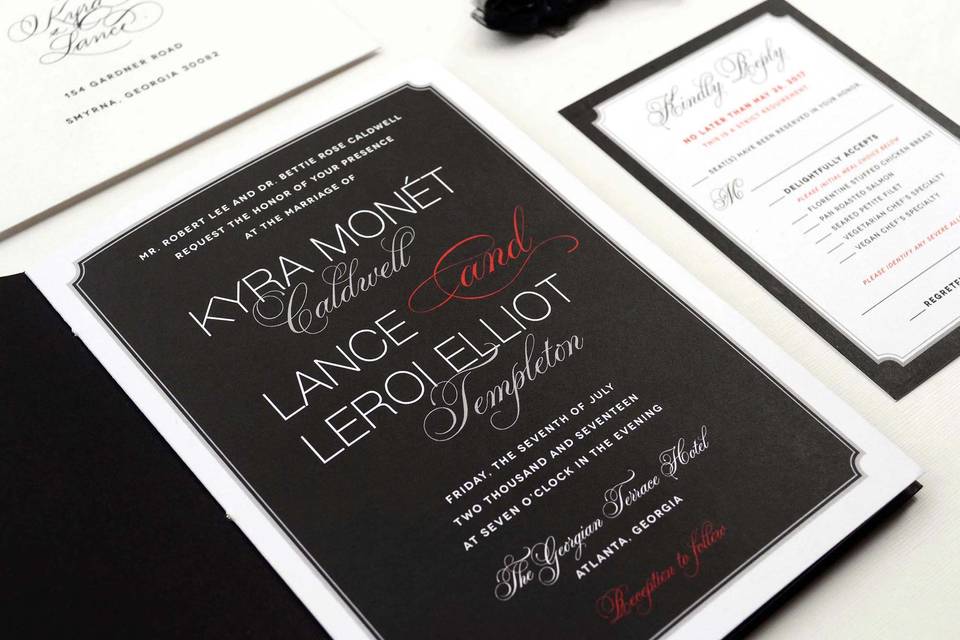 Kyra
Lance
154 GARDNER ROAD
SMYRNA, GEORGIA 30082
MR. ROBERT LEE AND DR. BETTIE ROSE CALDWELL
REQUEST THE HONOR OF YOUR PRESENCE
AT THE MARRIAGE OF
KYRA MONÉT
Caldwell and
LANCE
LEROI ELLIOT
Templeton
FRIDAY, THE SEVENTH OF JULY
TWO THOUSAND AND SEVENTEEN
AT SEVEN O'CLOCK IN THE EVENING
The Georgian Terrace Hotel
ATLANTA, GEORGIA
Reception to follow
Kindly Reply
NO LATER THAN MAY 26, 2017
THIS IS A STRICT REQUIREMENT
SEAT(S) HAVE BEEN RESERVED IN YOUR HONOR
M
DELIGHTFULLY ACCEPTS
PLEASE INITIAL MEAL CHOICE BELOW
FLORENTINE STUFFED CHICKEN BREAST
PAN ROASTED SALMON
SEARED PETITE FILET
VEGETARIAN CHEF'S SPECIALTY
VEGAN CHEF'S SPECIALTY
PLEASE IDENTIFY ANY SEVERE